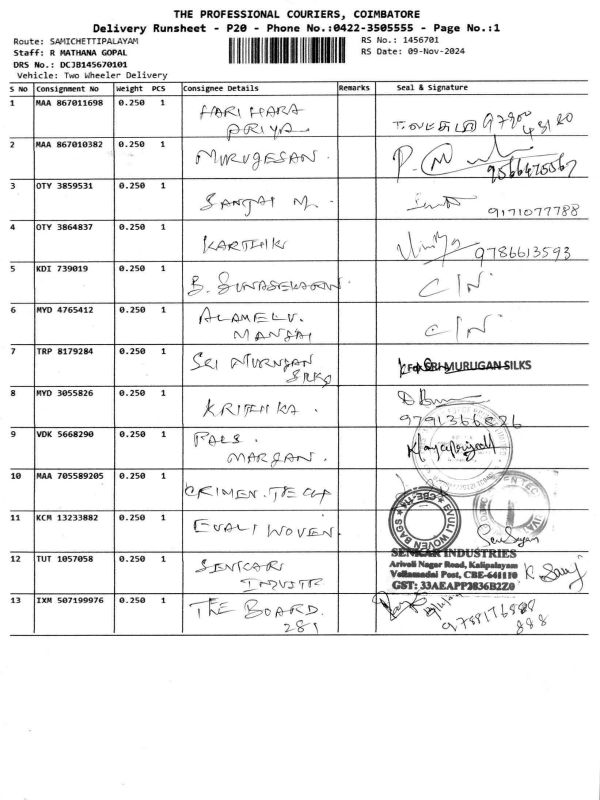 THE PROFESSIONAL COURIERS, COIMBATORE
Delivery Runsheet - P20 - Phone No.:0422-3505555 - Page No.:1
Route: SAMICHETTIPALAYAM RS No.: 1456701
Staff: R MATHANA GOPAL RS Date: 09-Nov-2024
DRS No.: DCJB145670101
Vehicle: Two Wheeler Delivery
S No Consignment No Weight PCS Consignee Details Remarks Seal & Signature
1 MAA 867011698 0.250 1 HARI HARA
PRIYA 97900
43120
2 MAA 867010382 0.250 1 MURUGESAN.
9566475567
3 OTY 3859531 0.250 1 SANJAI M.
9171077788
4 OTY 3864837 0.250 1 KARTHIK
9786613593
5 KDI 739019 0.250 1 B. GUNASEKARAN. C/N
6 MYD 4765412 0.250 1 ALAMELU. C/N
MANGAI
7 TRP 8179284 0.250 1 SRI MURUGAN For SRI MURUGAN SILKS
SILKS
8 MYD 3055826 0.250 1 KRITHIKA.
9791366826
9 VDK 5668290 0.250 1 PALS.
MARGAN.
10 MAA 705589205 0.250 1
11 KCM 13233882 0.250 1 EVALI WOVEN. EVULI WOVEN BAGS CBE-
12 TUT 1057058 0.250 1 SENKARI SENKAR INDUSTRIES
Arivoli Nagar Road, Kalipalayam
Vellamadai Post, CBE-641110
GST: 33AEAPP2836B2Z0
13 IXM 507199976 0.250 1 THE BOARD.
281 9788176888
888